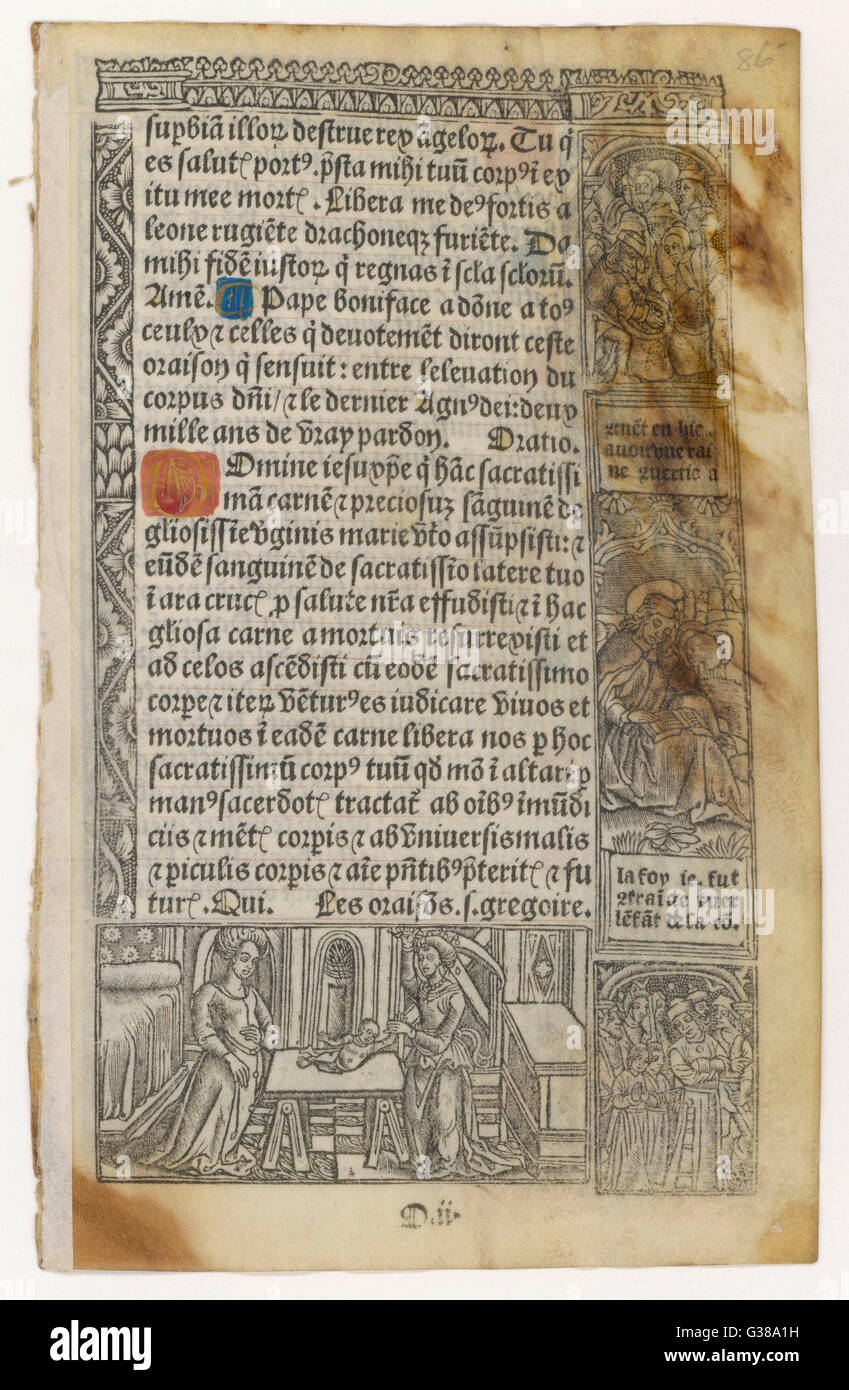 86
supbiā illoꝝ destrue rex āgeloꝝ. Tu q̄
es salutꝭ portꝰ. p̄sta mihi tuū corpꝰ ī ex
itu mee mortꝭ. Libera me deꝰ fortis a
leone rugiēte drachoneqꝫ furiēte. Da
mihi fidē iustoꝝ q̄ regnas ī scła scłorū.
Amē. Pape boniface a dōne a toꝰ
ceulx ⁊ celles q̄ deuotemēt diront ceste
oraison q̄ sensuit: entre leleuation du
corpus dn̄i/ ⁊ le dernier Agnꝰ dei: deux
mille ans de vray pardon. Oratio.
DOmine iesu xp̄e q̄ hāc sacratissi
mā carnē ⁊ preciosuꝫ sāguinē de
gliosissīe v̄ginis marie v̄to assūpsisti: ⁊
eūdē sanguinē de sacratissīo latere tuo
ī ara crucꝭ ꝓ salute nr̄a effudisti ⁊ ī hac
gliosa carne a mortuis resurrexisti et
ad celos ascēdisti cū eodē sacratissimo
corpe ⁊ iteꝝ vēturꝰ es iudicare viuos et
mortuos ī eadē carne libera nos ꝑ hoc
sacratissimū corpꝰ tuū qd̄ mō ī altari ꝑ
manꝰ sacerdotꝭ tractat᷑ ab oībꝰ īmūdi
ciis ⁊ mētꝭ corpis ⁊ ab vniuersis malis
⁊ piculis corpis ⁊ aīe pn̄tibꝰ p̄teritꝭ ⁊ fu
turꝭ. Qui. Les oraisōs. s. gregoire.
la foy ie. fut
D.ii.
alamy
Image ID: G38A1H
www.alamy.com